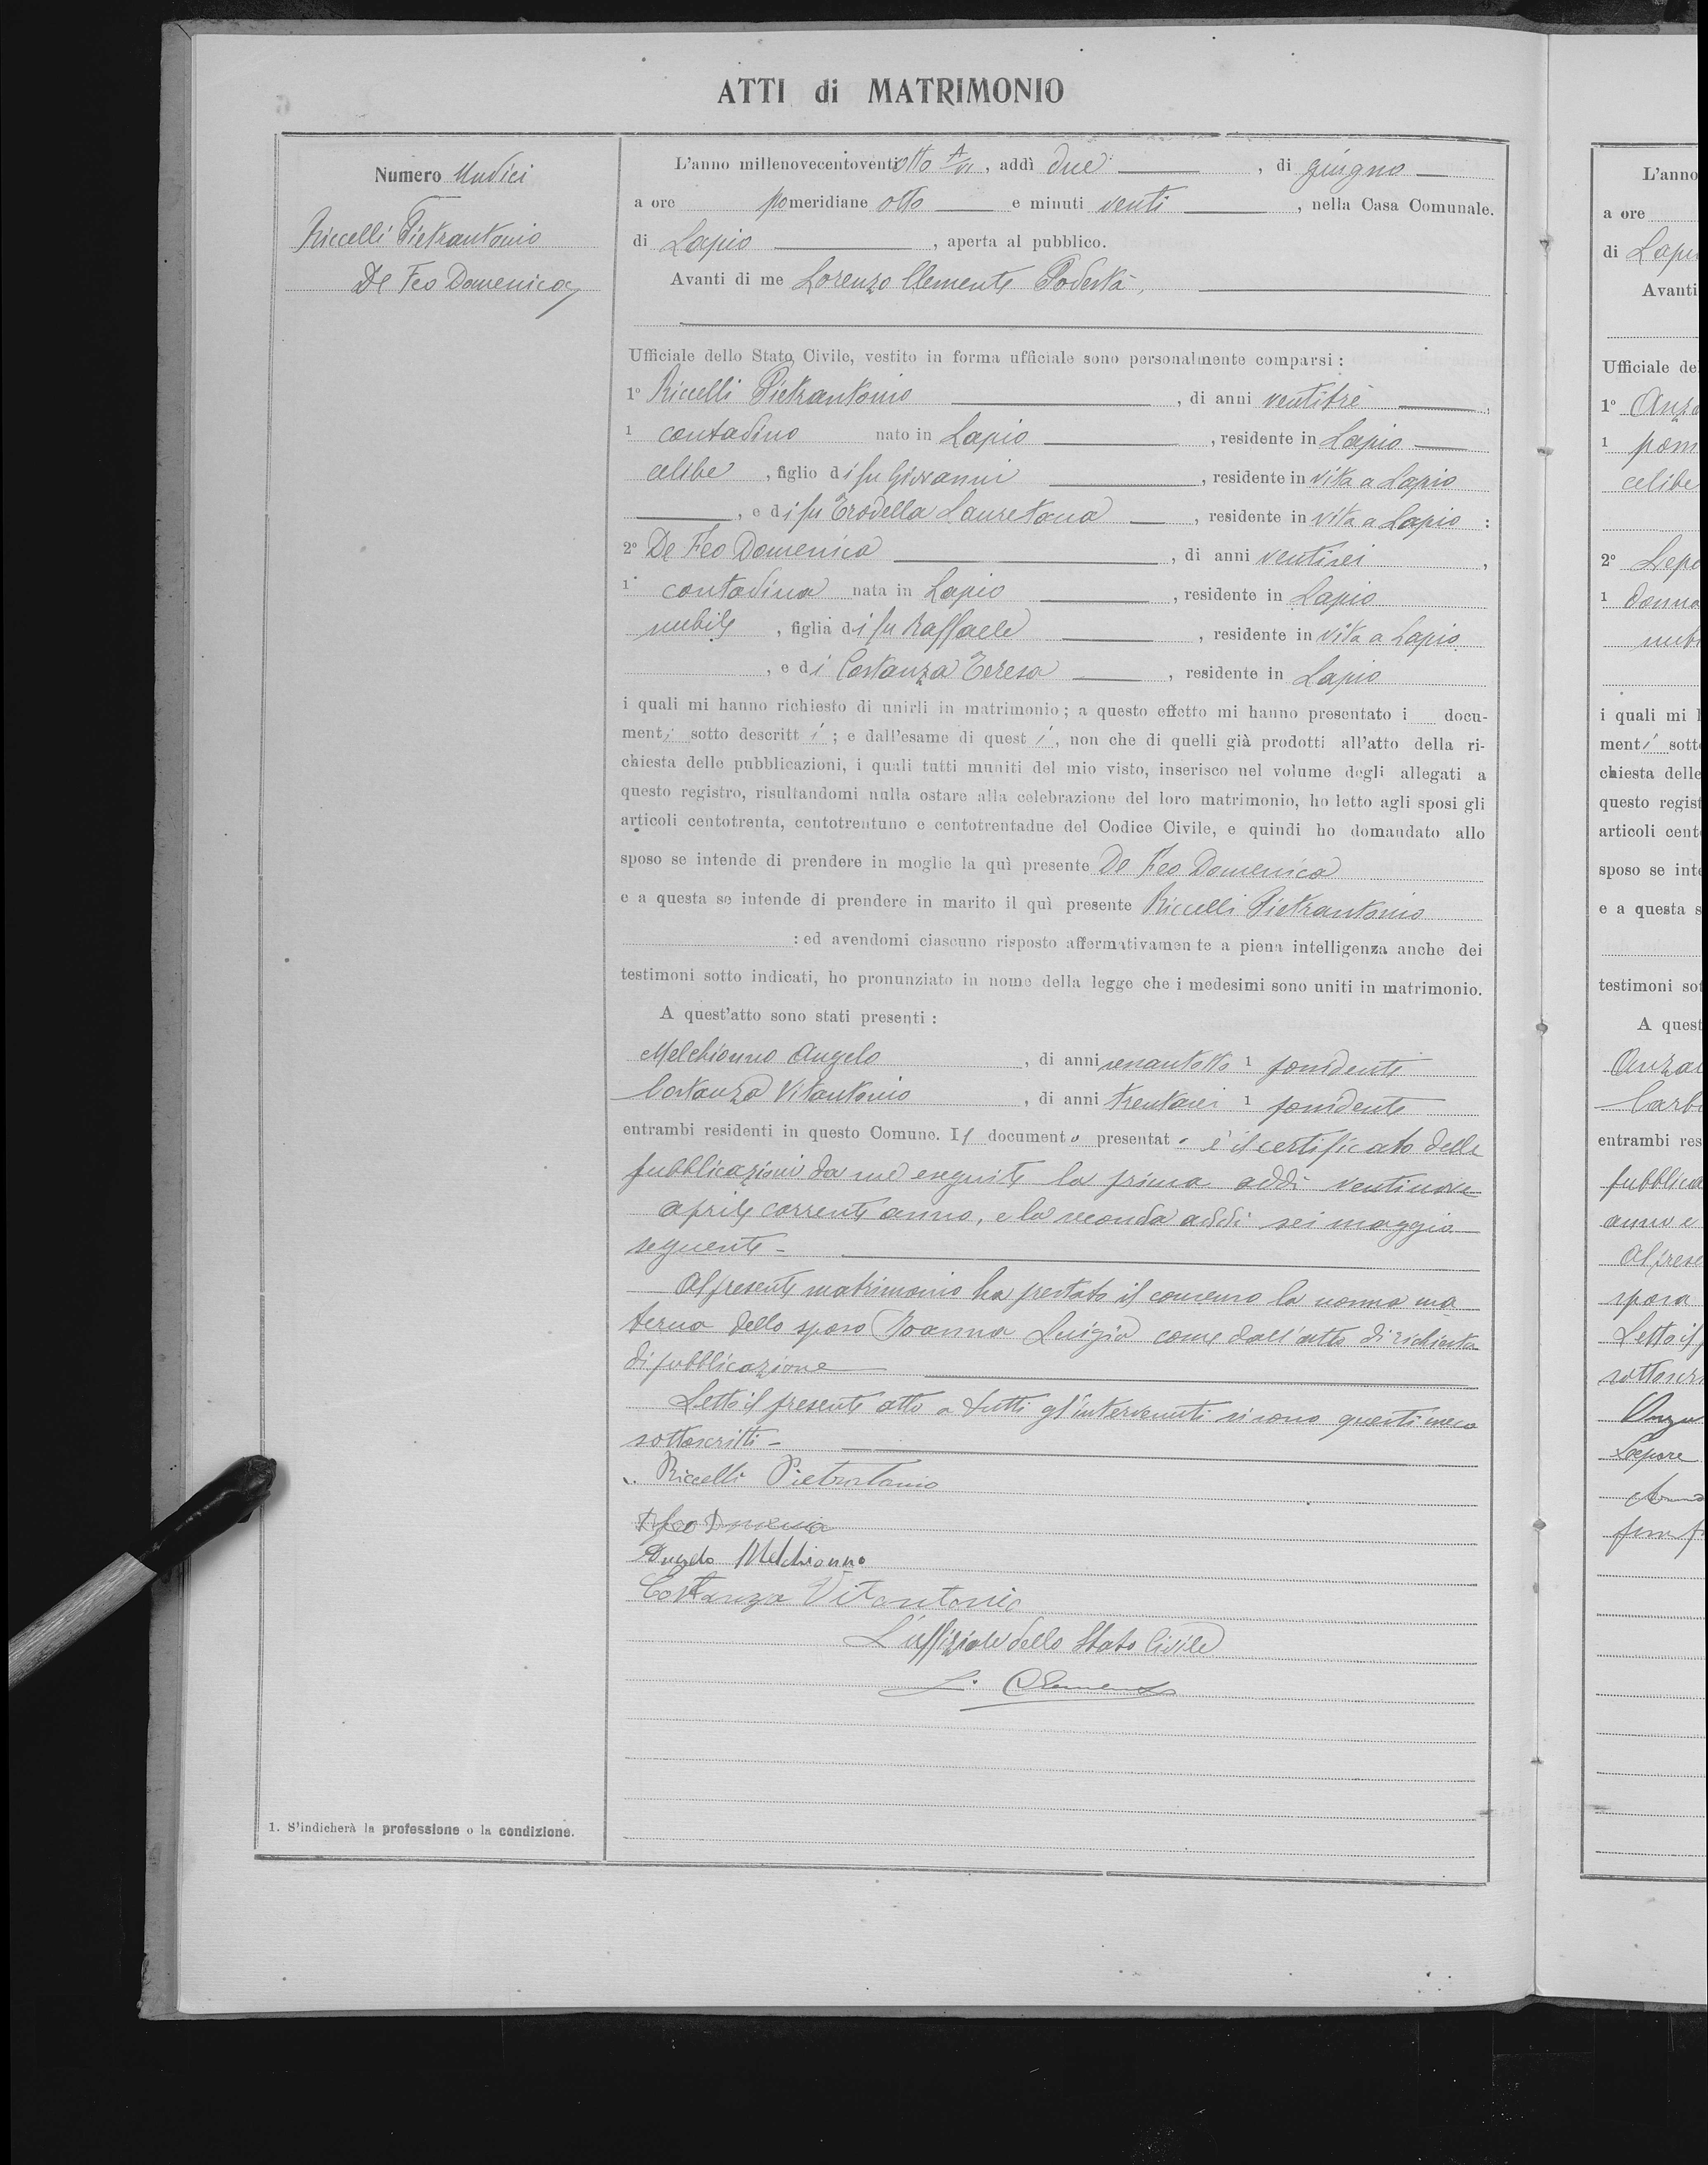 ATTI di MATRIMONIO
Numero Undici
Riccelli Pietrantonio
De Feo Domenica
L'anno millenovecentoventiotto A VI, addì due, di giugno
a ore pomeridiane otto e minuti venti, nella Casa Comunale.
di Lapio, aperta al pubblico.
Avanti di me Lorenzo Clemente Podestà,
Ufficiale dello Stato Civile, vestito in forma ufficiale sono personalmente comparsi:
1° Riccelli Pietrantonio, di anni ventitrè,
1 contadino nato in Lapio, residente in Lapio
celibe, figlio di fu Giovanni, residente in vita a Lapio
, e di fu Trodella Lauretana, residente in vita a Lapio:
2° De Feo Domenica, di anni ventisei,
1 contadina nata in Lapio, residente in Lapio
nubile, figlia di fu Raffaele, residente in vita a Lapio
, e di Costanza Teresa, residente in Lapio
i quali mi hanno richiesto di unirli in matrimonio; a questo effetto mi hanno presentato i docu-
menti sotto descritti; e dall'esame di questi, non che di quelli già prodotti all'atto della ri-
chiesta delle pubblicazioni, i quali tutti muniti del mio visto, inserisco nel volume degli allegati a
questo registro, risultandomi nulla ostare alla celebrazione del loro matrimonio, ho letto agli sposi gli
articoli centotrenta, centotrentuno e centotrentadue del Codice Civile, e quindi ho domandato allo
sposo se intende di prendere in moglie la quì presente De Feo Domenica
e a questa se intende di prendere in marito il quì presente Riccelli Pietrantonio
: ed avendomi ciascuno risposto affermativamente a piena intelligenza anche dei
testimoni sotto indicati, ho pronunziato in nome della legge che i medesimi sono uniti in matrimonio.
A quest'atto sono stati presenti:
Melchionno Angelo, di anni 1 possidente
Costanza Vitantonio, di anni trentasei 1 possidente
entrambi residenti in questo Comune. Il documento presentato è il certificato delle
pubblicazioni da me eseguite la prima addì ventinove
aprile corrente anno, e la seconda addì sei maggio
seguente -
Al presente matrimonio ha prestato il consenso la nonna ma
terna dello sposo Joanna Luigia come dall'atto di richiesta
di pubblicazione
Letto il presente atto a tutti gl'intervenuti si sono questi meco
sottoscritti -
Riccelli Pietrantonio
De feo Domenica
Angelo Melchionno
Costanza Vitantonio
L'uffiziale dello Stato Civile
L. Clemente
1. S'indicherà la professione o la condizione.
L'anno
a ore
di Lapi
Avanti
Ufficiale de
1° Anza
1 poss
celibe
2° Lepo
1 donna
nubi
i quali mi
menti sott
chiesta delle
questo regist
articoli cent
sposo se inte
e a questa s
testimoni sot
A quest
Anza
Carb
entrambi res
pubblica
anno e
Al prese
sposa
Letto il
sottoscri
Lepore